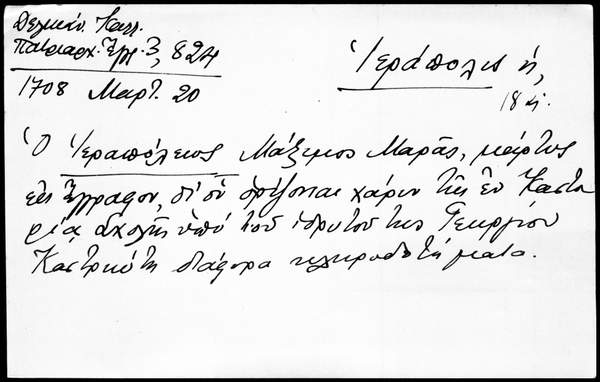 Δελικάν. Καλλ.
Πατριαρχ. Ἔγγρ. 3, 824
1708 Μαρτ. 20
Ἱεράπολις ἡ,
18 αἰ.
Ὁ Ἱεραπόλεως Μάξιμος Μαρᾶς, μάρτυς
εἰς ἔγγραφον, δι' οὗ ὁρίζονται χάριν τῆς ἐν Καστο
ρίᾳ σχολῆς ὑπὸ τοῦ ἱδρυτοῦ της Γεωργίου
Καστριώτη διάφορα κληροδοτήματα.